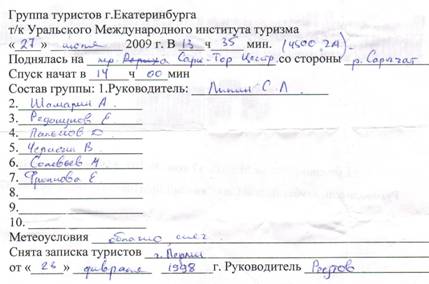 Группа туристов г.Екатеринбурга
т/к Уральского Международного института туризма
« 27 » июля 2009 г. В 13 ч 35 мин. (4500, 2А).
Поднялась на пер. Сары-Тор Центр. со стороны р. Сарычат
Спуск начат в 14 ч 00 мин
Состав группы: 1.Руководитель: Липин С. Л
2. Шамарин А.
3. Редозубов Е
4. Д
5. В.
6. Соловьев М.
7. Е
8.
9.
10.
Метеоусловия облачно, снег
Снята записка туристов г. Перми
от « 26 » февраля 1998 г. Руководитель